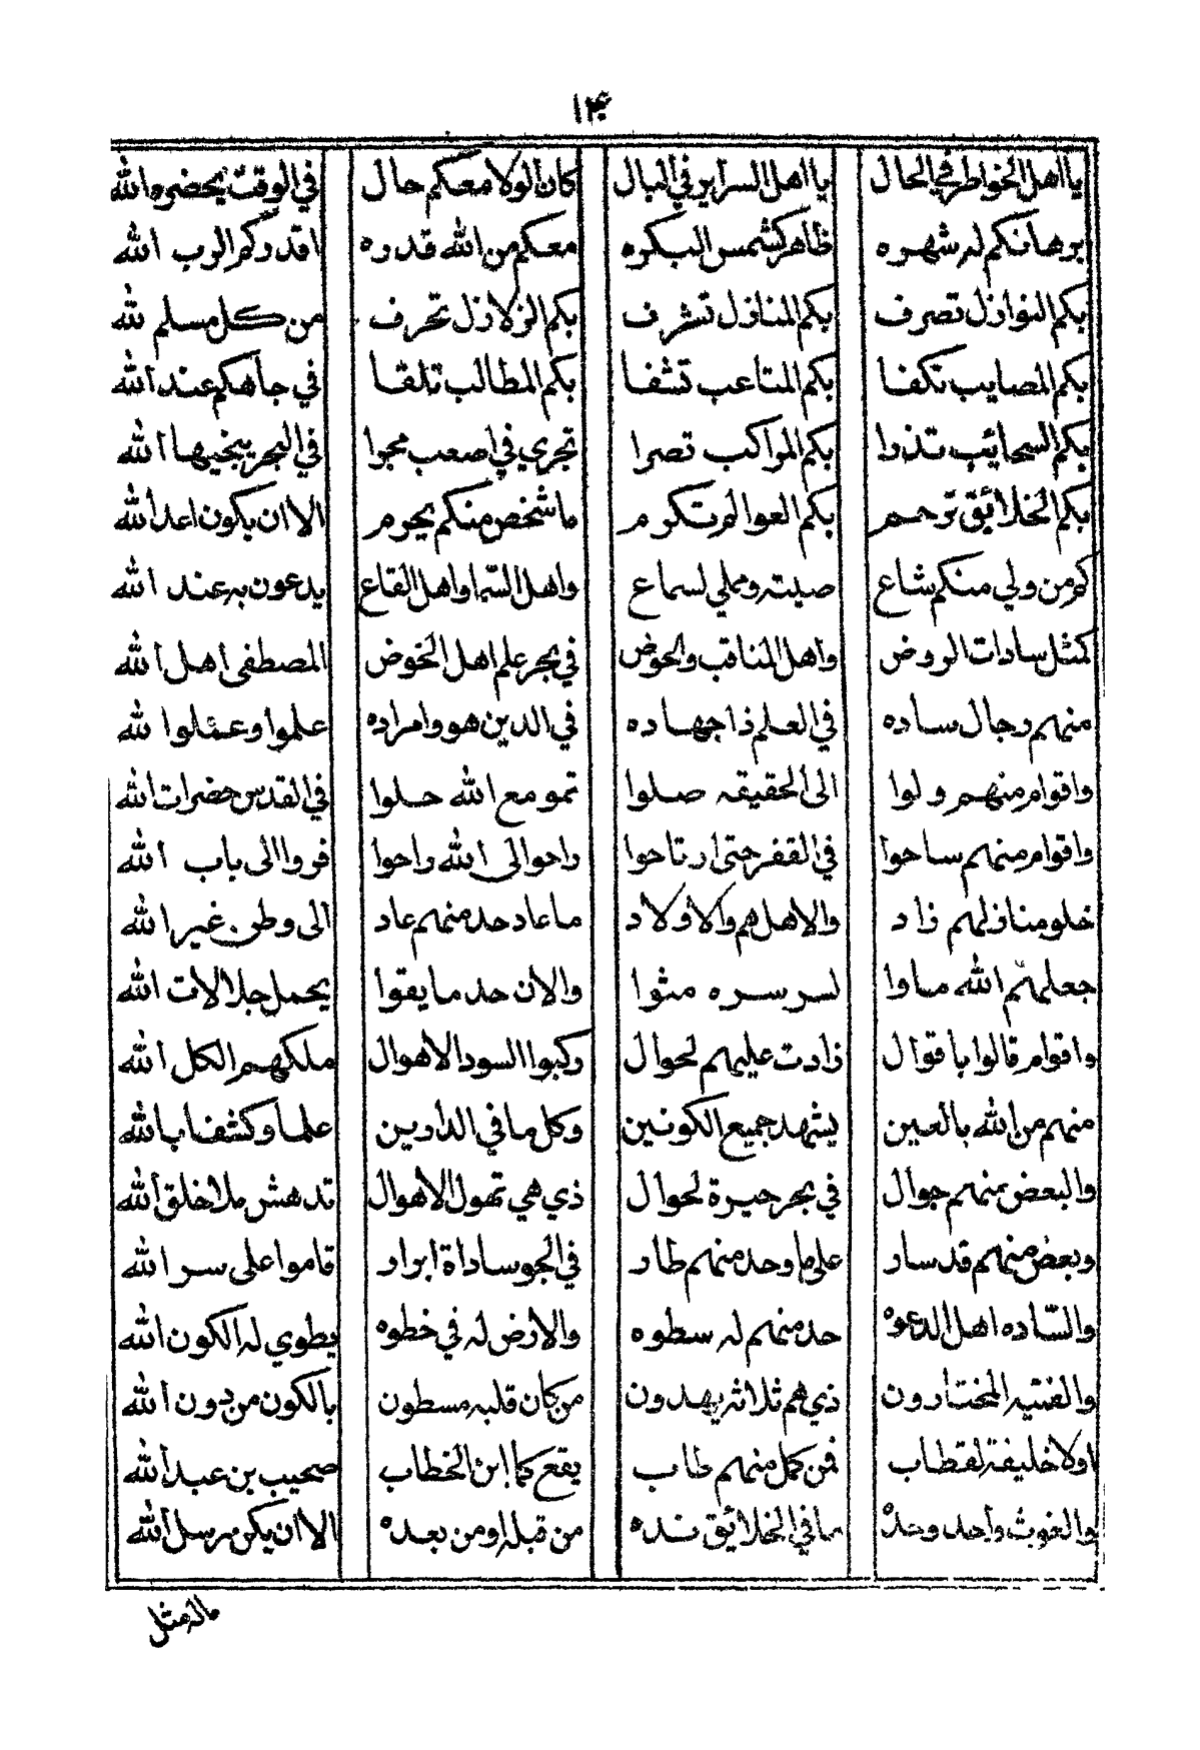 ١٣٠
يا اهل الخواطر في الحال يا اهل السراير في البال كان الولا معكم حال في الوقت يحضره الله
برهانكم له شهره ظاهر كشمس البكره معكم من الله قدره اقدركم الرب الله
بكم النوازل تصرف بكم المنازل تشرف بكم الزلازل تحرف من كل مسلم لله
بكم المصايب تكفا بكم المتاعب تشفا بكم المطالب تلقا في جاهكم عند الله
بكم السحائيب تذوا بكم المراكب تصرا تجري في اصعب مجوا في البحر ينجيها الله
بكم الخلائيق ترحم بكم العوالم تكرم ما شخص منكم يحرم الا ان يكون اعد الله
كم من ولي منكم شاع صيته وملي لسماع واهل السما واهل القاع يدعون به عند الله
كمثل سادات الروض واهل المناقب والحوض في بحر علم اهل الخوض المصطفى اهل الله
منهم رجال ساده في العلم ذا جهاده في الدين هو وامراده علموا وعملوا لله
واقوام منهم ولوا الى الحقيقه صلوا تمو مع الله حلوا في القدس حضرات الله
واقوام منهم ساحوا في القفر حتى ارتاحوا راحوا الى الله راحوا فروا الى باب الله
خلو منازلهم زاد والاهل هم والاولاد ما عاد حد منهم عاد الى وطن غير الله
جعلهم الله ماوا لسر سره مثوا والان حد ما يقوا يحمل جلالات الله
واقوام قالوا باقوال زادت عليهم لحوال وكبوا السود الاهوال ملكهم الكل الله
منهم من الله بالعين يشهد جميع الكونين وكل ما في الدارين علما وكشفا بالله
والبعض منهم جوال في بحر حيرة لحوال ذي هي تهول الاهوال تدهش ملا خلق الله
وبعض منهم قد سار على ما وحد منهم طار في الجو ساداة ابرار قاموا على سر الله
والساده اهل الدعوه حد منهم له سطوه والارض له في خطوه يطوي له الكون الله
والفتيه المختارون ذي هم ثلاثه يهدون من كان قلبه مسطون بالكون من دون الله
اولا خليفة لقطاب فمن كمل منهم طاب يقع كما ابن الخطاب صحيب بن عبد الله
والغوث واحد وحده ما في الخلائيق نده من قبله او من بعده الا ان يكن مرسل الله
ماله مثل